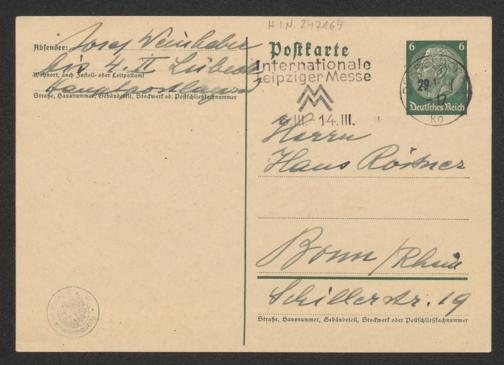 H.I.N. 247164
Absender: Josef Weinheber
bis 4. II Lübeck
Wohnort, auch Zustell- oder Leitpostamt
Hauptpostlagernd
Straße, Hausnummer, Gebäudeteil, Stockwerk od. Postschließfachnummer
Postkarte
Internationale
Leipziger Messe
14. III.
6 6
Deutsches Reich
29.
Herrn
Hans Röstner
Bonn/Rhein
Schillerstr. 19
Straße, Hausnummer, Gebäudeteil, Stockwerk oder Postschließfachnummer